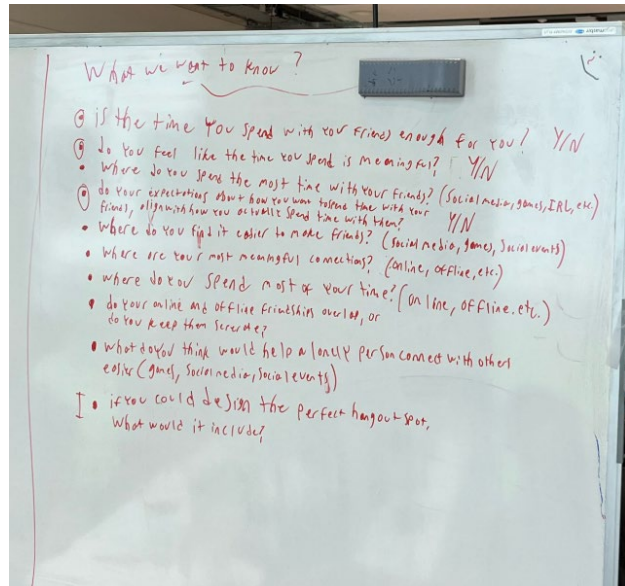 What we want to know?
• is the time you spend with your friends enough for you? Y/N
• do you feel like the time you spend is meaningful? Y/N
• where do you spend the most time with your friends? (social media, games, IRL, etc.)
• do your expectations about how you want to spend time with your
friends, align with how you actually spend time with them? Y/N
• where do you find it easier to make friends? (social media, games, social events)
• where are your most meaningful connections? (online, offline, etc.)
• where do you spend most of your time? (online, offline. etc.)
• do your online and offline friendships overlap, or
do you keep them seperate?
• what do you think would help a lonely person connect with others
easier (games, social media, social events)
I • if you could design the perfect hangout spot,
what would it include?